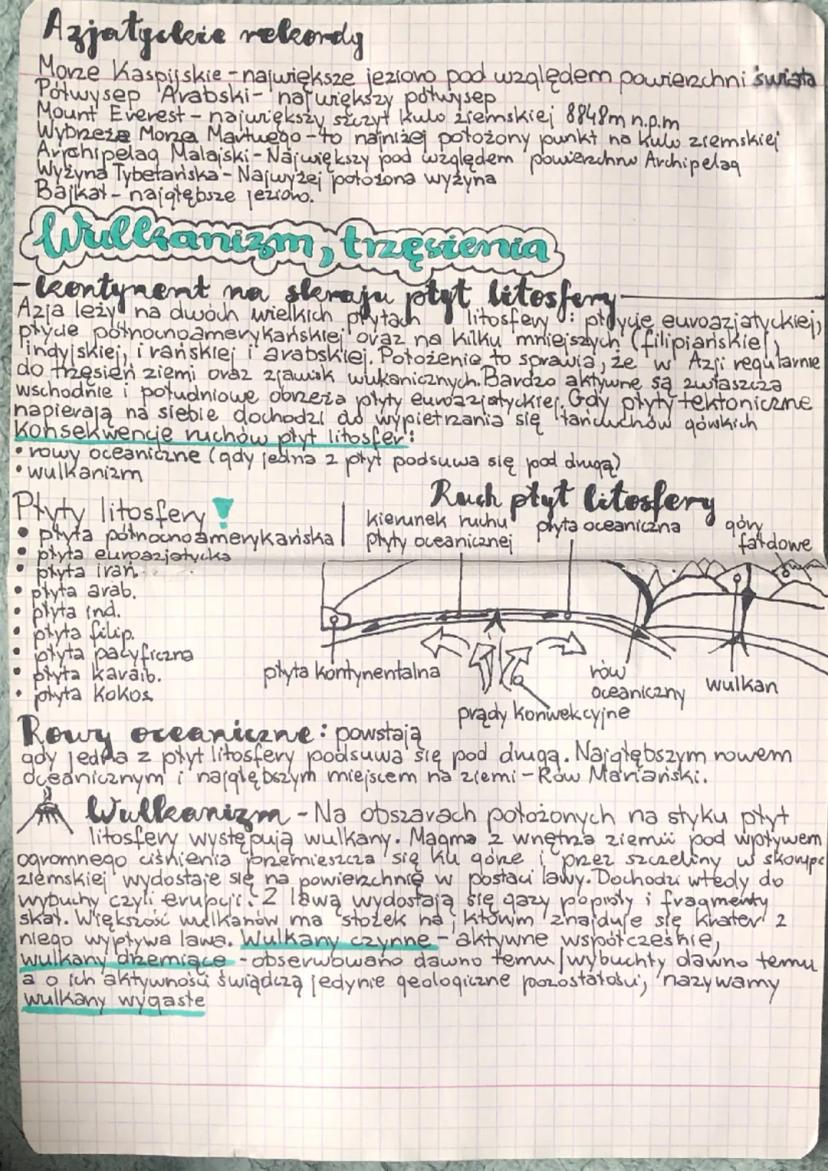 Azjatyckie rekordy
Morze Kaspijskie - największe jezioro pod względem powierzchni świata
Półwysep Arabski - największy półwysep
Mount Everest - największy szczyt kuli ziemskiej 8848m n.p.m
Wybrzeże Morza Martwego - to najniżej położony punkt na kuli ziemskiej
Archipelag Malajski - Największy pod względem powierzchni Archipelag
Wyżyna Tybetańska - Najwyżej położona wyżyna
Bajkał - najgłębsze jezioro.
Wulkanizm, trzęsienia
- kontynent na skraju płyt litosfery
Azja leży na dwóch wielkich płytach litosfery: płycie euroazjatyckiej,
płycie północnoamerykańskiej oraz na kilku mniejszych (filipiańskiej,
indyjskiej, irańskiej i arabskiej. Położenie to sprawia, że w Azji regularnie
do trzęsień ziemi oraz zjawisk wukanicznych. Bardzo aktywne są zwłaszcza
wschodnie i południowe obrzeża płyty euroazjatyckiej. Gdy płyty tektoniczne
napierają na siebie dochodzi do wypiętrzania się łańcuchów górskich
Konsekwencje ruchów płyt litosfer:
• rowy oceaniczne (gdy jedna z płyt podsuwa się pod drugą)
• wulkanizm
Płyty litosfery!
• płyta północnoamerykańska
• płyta euroazjatycka
• płyta irań.
• płyta arab.
• płyta ind.
• płyta filip.
• płyta pacyficzna
• płyta karaib.
• płyta kokos
Ruch płyt litosfery
kierunek ruchu
płyty oceanicznej
płyta oceaniczna
góry
fałdowe
płyta kontynentalna
prądy konwekcyjne
rów
oceaniczny
wulkan
Rowy oceaniczne: powstają
gdy jedna z płyt litosfery podsuwa się pod drugą. Najgłębszym rowem
oceanicznym i najgłębszym miejscem na ziemi - Rów Mariański.
Wulkanizm - Na obszarach położonych na styku płyt
litosfery występują wulkany. Magma z wnętrza ziemii pod wpływem
ogromnego ciśnienia przemieszcza się ku górze i przez szczeliny w skorupe
ziemskiej wydostaje się na powierzchnię w postaci lawy. Dochodzi wtedy do
wybuchy czyli erupcji. Z lawą wydostają się gazy popioły i fragmenty
skał. Większość wulkanów ma stożek na którym znajduje się krater z
niego wypływa lawa. Wulkany czynne - aktywne współcześnie,
wulkany drzemiące - obserwowano dawno temu/wybuchły dawno temu
a o ich aktywności świadczą jedynie geologiczne pozostałości, nazywamy
wulkany wygasłe